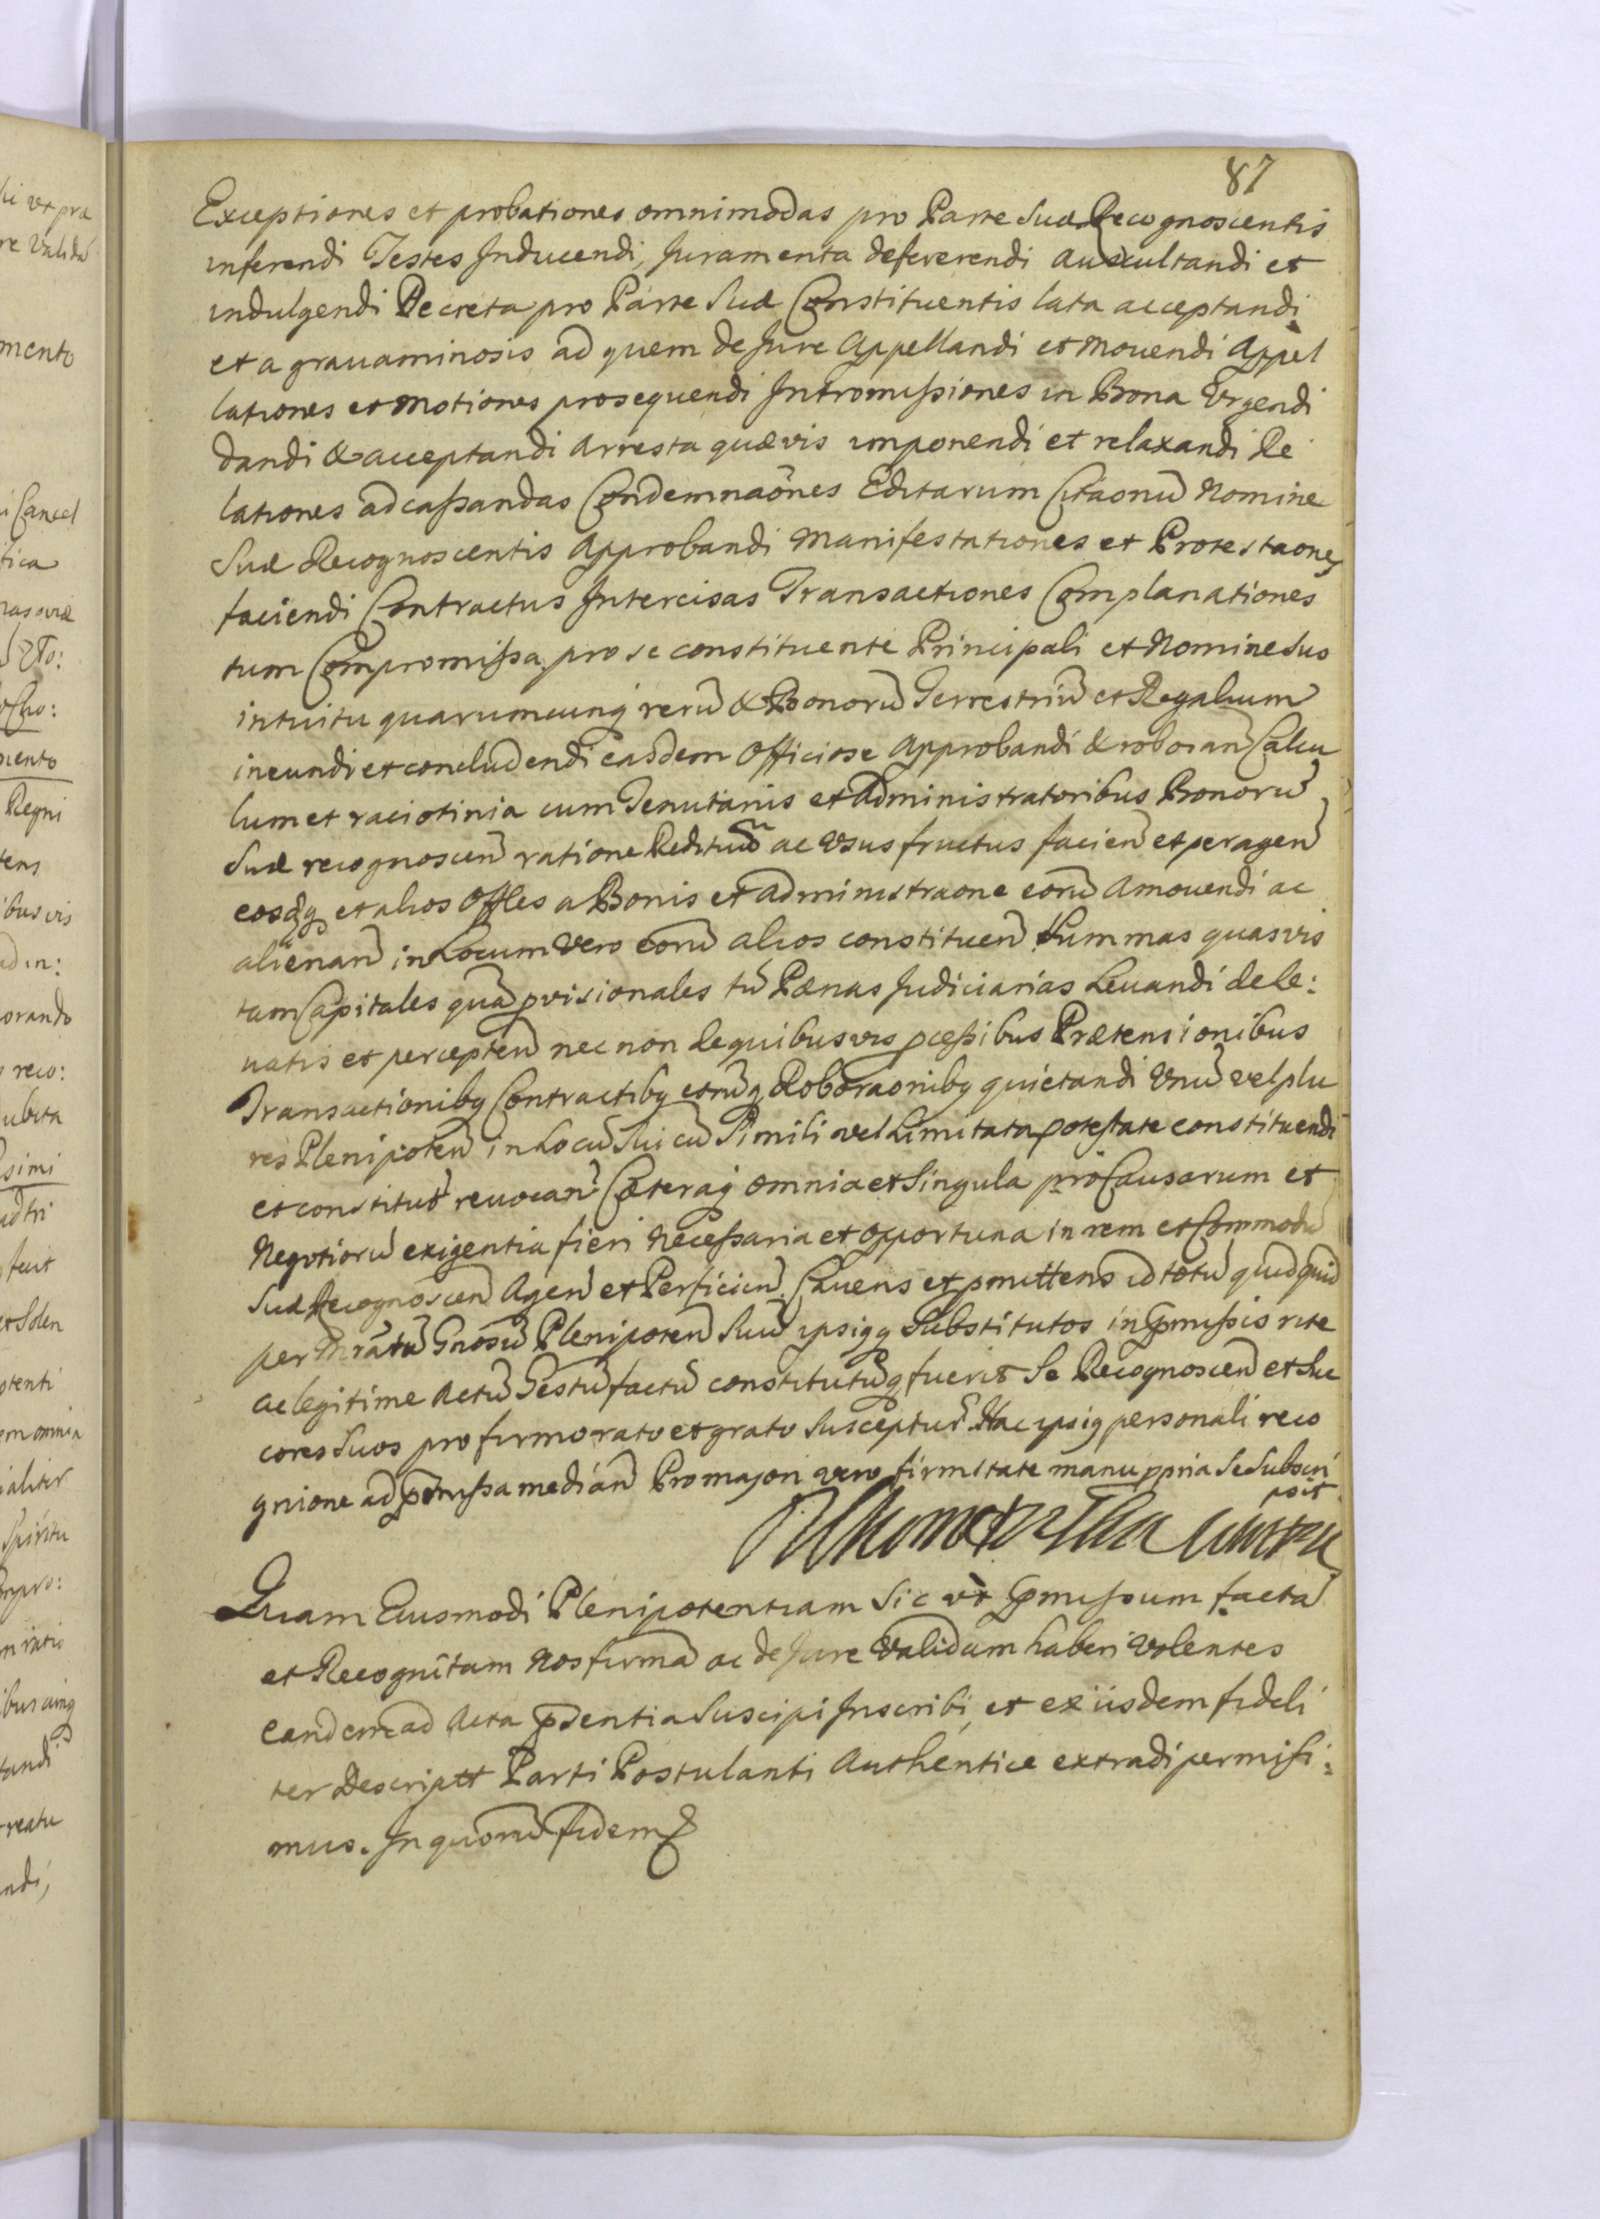 87
Exceptiones et probationes omnimodas pro Parte Sua Recognoscentis
inferendi Testes Inducendi, Juramenta defererendi auscultandi et
indulgendi Decreta pro Parte Sua Constituentis lata acceptandi
et a gravaminosis ad quem de Jure Appellandi et Movendi Appel
lationes et Motiones prosequendi Intromissiones in Bona Urgendi
dandi & acceptandi Arresta quævis imponendi et relaxandi Re
lationes ad cassandas Condemnaões Editarum Citaonũ Nomine
Suæ Recognoscentis Approbandi Manifestationes et Protestaones
faciendi Contractus Intercisas Transactiones Complanationes
tum Compromissa pro se constituente Principali et Nomine Suo
intuitu quarumcunq rerũ & Bonorũ Terrestriũ et Regalium
ineundi et concludendi easdem Officiose Approbandi & roboran̄ Calcu
lum et raciotinia cum Tenutariis et Administratoribus Bonorũ
Suæ recognoscen̄ ratione Redituũ ac Usus fructus facien̄ et peragen̄
eosdq et alios Offles a Bonis et administraone eorũ Amovendi ac
alienan̄ in Locum vero eorũ alios constituen̄ Summas quasvis
tam Capitales quã pvisionales tũ Pœnas Judiciarias Levandi de le:
vatis et perceptẽ nec non de quibusvis pcessibus Prætensionibus
Transactionibq Contractibq eorũq Roboraonibq quietandi Unũ vel plu
res Plenipoten̄ in Locũ Sui cũ Simili vel Limitata potestate constituendi
et constitut revocan̄ Cæteraq omnia et Singula pro Causarum et
Negotiorũ exigentia fieri Necessaria et opportuna in rem et Commodũ
Suæ Recognoscen̄ Agen̄ et Perficien̄ Cavens et pmittens id totũ quidquid
per Gnosũ Plenipoten̄ Suũ ipsiqq Substitutos in pmissis rite
ac legitime Actũ Gestũ factũ constitutũq fuerit Se Recognoscen̄ et Suc
cores Suos pro firmo rato et grato Susceptur Hac ipsiq personali reco
gnione ad pmissa median̄ Pro majori vero firmitate manu ppria Se Subscri
psit
Quam Eiusmodi Plenipotentiam Sic ut pmissum factã
et Recognitam Nos firmã ac de Jure Validam haberi Volentes
eandem ad Acta psentia Suscipi Inscribi, et ex iisdem fideli
ter Descriptt Parti Postulanti Authentice extradi permisi:
mus. In quorũ fidem